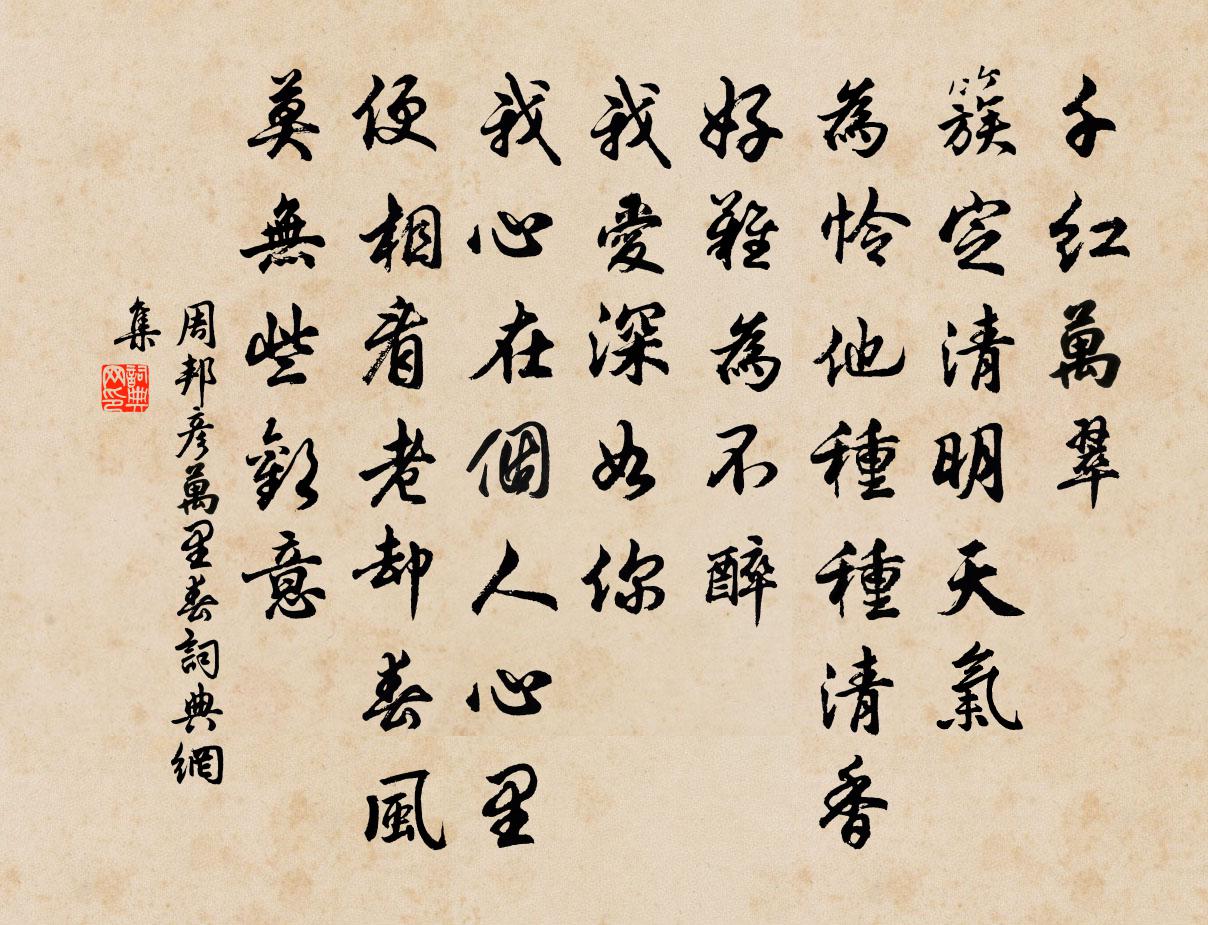 千红萬翠
簇定清明天氣
為怜他種種清香
好難為不醉
我愛深如你
我心在個人心里
便相看老却春風
莫無些歡意
周邦彦萬里春詞典網
集
詞典
网印